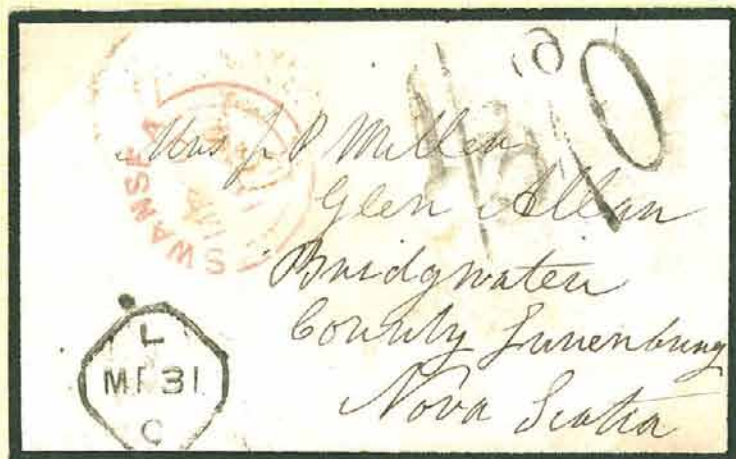 SWANSEA
Mrs J. P Miller
Glen Allan
Bridgwater
County Lunenburg
Nova Scotia
L
31
C